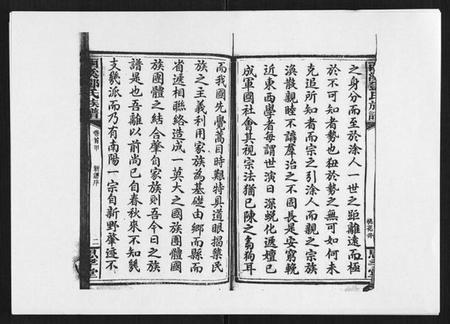 之身分而至於涂人一世之距離遠而極
於不可知者勢也狃於勢之無可如何未
克追所知者而宗之引涂人而親之宗族
渙散觀睦不講羣治之不固長是安窮輓
近東西學者每謂世演日深蛻化遞嬗已
成軍國社會其視宗法猶已陳之芻狗耳
而我國先覺蒿目時艱特具道眼揭櫫民
族之主義利用家族為基礎由鄉而縣而
省遞相聯絡造成一莫大之國族團體國
族團體之結合肇自家族則吾今日之族
譜是也吾離以前尚已自春秋來不知幾
支幾派而乃有南陽一宗自新野肇迹不
氏族譜
卷首
序
二